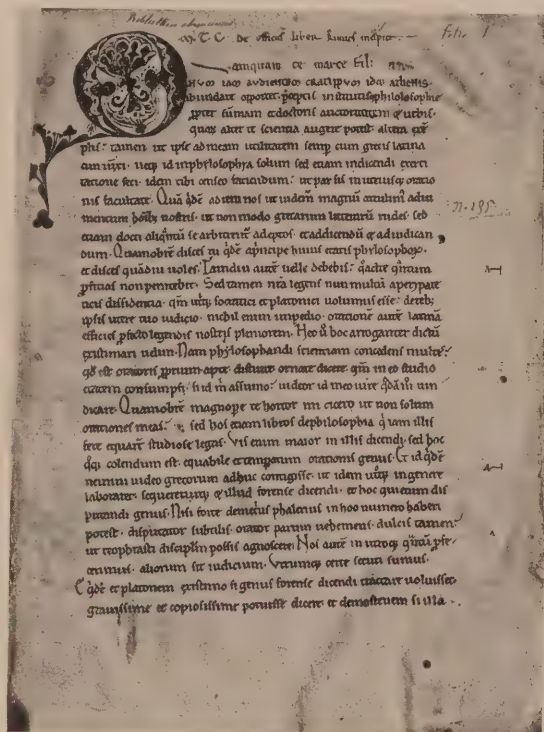 M T C De officiis liber primus incipit
Q uamquam te marce fili annum
iam audientem cratippum idque athenis
abundare oportet preceptis institutisque philosophie
propter summam et doctoris auctoritatem et urbis
quorum alter te scientia augere potest altera
plis. tamen ut ipse ad meam utilitatem semp cum grecis latina
iunxi. neq; id in phylosophya solum sed etiam in dicendi exerci
tatione feci. idem tibi censeo faciendum. ut par sis in utriusq; oratio
nis facultate. Quā qde ad rem nos ut uidem magnū attulim adiu
mentum hoībȝ nostris. ut non modo grecarum litterarū rudes. sed
etiam docti aliqntū se arbitrent adeptos. et addicendū et adiudican
dum. Quamobrē disces tu qde aprincipe huius etatis philosophoꝝ.
et disces quādiu uoles. Tamdiu autē uelle debebis. qdte qntum
pficias non penitebit. Sed tamen nra legens non multū aperypate
ticis dissidentia. qm utiq; socratici et platonici uolumus esse. derebȝ
ipsis utere tuo iudicio. nichil enim impedio. orationē autē latinā
efficies pfecto legendis nostris pleniorem. Nec ū hoc arroganter dictū
existimari uelim. Nam phylosophandi scientiam concedens multis.
qd est oratoris pprium. apte distincte ornate dicere. qm in eo studio
etatem consumpsi. si id m assumo. uideor id meo iure qdam m uin
dicare. Quamobrē magnope te hortor mi cicero ut non solum
orationes meas. sed hos etiam libros dephilosophia q iam illis
fere equarē studiose legas. Vis enim maior in illis dicendi. sed hoc
qq; colendum est. equabile et temperatum orationis genus. Et id qde
nemini uideo grecorum adhuc contigisse. ut idem utiq; in genere
laboraret. sequereturq; et illud forense dicendi. et hoc quietum dis
putandi genus. Nisi forte demetrius phalerius in hoc numero haberi
potest. disputator subtilis. orator parum uehemens. dulcis tamen.
ut teophrasti disciplm possis agnoscere. Nos autē in utroq; qntū pfe
cerimus. aliorum sit iudicium. Vtrumq; certe secuti sumus.
Eqde et platonem existimo si genus forense dicendi tractare uoluisset.
grauissime et copiosissime potuisse dicere. et demostenem si illa